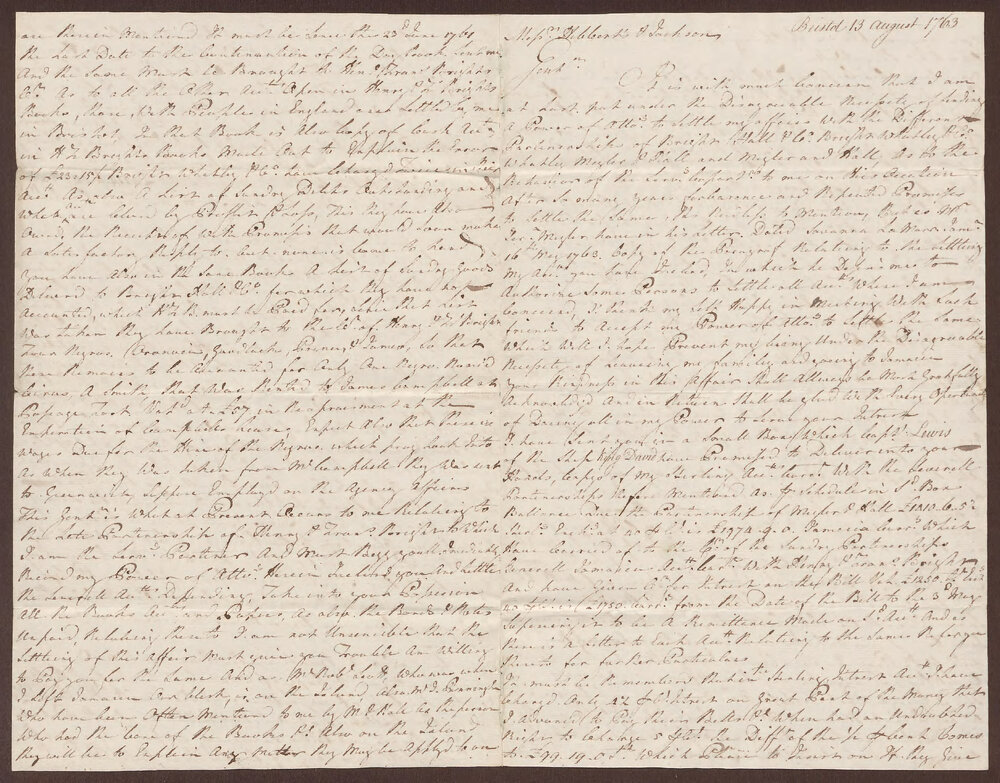 are therein Mentiond It must be Since the 23d June 1761
the Last Date to the Continuation of the Day Book Sent me
And the Same Must be Brought to Henry & Fran: Brights
Co. As to all the Other Accts Open in Henry Brights
Books, those with People in England are Settled by me
in Bristol In that Book is Also Copy of Cash Acct
in H: Brights Books Made Out to Explain the Error
of £23.15/ Bright Whatley & Co. have Charged Twice in
Acct As also A List of Sundry Debts Outstanding and
which are Received by Bright & Co. this they have Also
Owned the Receipt of with Promises that would soon make
A Satisfactory Reply to. but none is Come to Hand
You have Also in the Same Book A List of Sundry Goods
Deliverd to Bright Hall & Co. for which they have no
Accounted, which must be Paid for, Also the hire
was when they have Brought to the Cr. of Henry & Fran: Bright
four Negros So that
their Remains to be Accounted for Only One Negro Named
a Smith that was Rented to James Campbell at
Passage Fort Val.d at £57 in the apraisment at the
Expiration of Campbles Leases Expect Also that there is
wages Due for the Hire of the Negroes which pray look Into
As when they was taken from Mr Campbell they was sent
to Greenwich, Suppose Employd on the Agency Affairs
This Gentn is what at Present Occurs to me Relating to
the Late Partnership of Henry & Fran: Bright to which
I am the Partner And Must Begg youll Immediately
Record my Power of Atto. Herein Inclosed you And Settle
the Severall Accts depending, Take into your Possession
All the Books Accts and Papers, as also the Bonds & Notes
Unpaid, Relating thereto I am not Unsencible that the
Settling of this Affair Must give you Trouble Am Willing
to Pay you for the Same And as Mr Who was when
I left Jamaica Our Clerk, is on the Island, also Mr J. Burrough
Who have been Often Mentiond to me by Mr Hall as the person
Who had the Care of the Books is Also on the Island
they will be to Explain Any Matter they May be Applyd to on
Bristol 13 August 1763
Messrs Hibberts & Jackson
Gentn
It is with much Concern that I am
at Last put under the Disagreeable Necessity of sending
A Power of Atto. to Settle my Affairs with the Different
Partnerships of Bright Hall & Co. Bright Whatley & Co.
Whatley Meyler & Hall and Meyler and Hall, As to the
Behaviour of the to me on this Occation
After So many years forbarance and Repeated Promises
to Settle the Same tis Needless to Mention, Such as Mr
Jer: Meyler have in his Letter Dated Savanna La Marr Jama
16th May 1763. Copy of the Paragraf Relating to the Settling
My Accts you have Inclosd, In which he Desires me to
Authorize Some Persons to Settle all Accts Where I am
Concernd, I think my Self Happy in Meeting with Such
friends to Accept my Power of Atto. to Settle the Same
Which Will I hope Prevent my being Under the Disagreeable
Necessity of Leaving my Family and going to Jamaica
Your Kindness in this Affair Shall Allways be Most Gratefully
Acknowledgd And in Return shall be glad with Every Opertunity
of Doing all in my Power to Serve your Intrest
I have Sent you in a Small Box (which Capt. Lewis
of the Ship King David have Promised to Deliver into your
Hands, Copys of My Sterling Accts Curr.t with the Severall
Partnerships before Mentioned As to Schedule in Sd Box
Ballance Due the Partnership of Meyler & Hall £1410.6.5¼
is £1974.9.0 Jamaica Curr.y Which
have Carried of to the Cr. of the Sundry Partnerships
Severall Jamaica Accts Curr.t With Henry & Fran: Bright
And have Given Cr. for Intrest on the Bill Val. £1250
is £1750 Curr.y from the Date of the Bill to the 3d May
Supposeing it to be A Remittance Made on Sd Acct And as
there is a Letter to Each Acct Relating to the Same Refer you
thereto for further Particulars
It must be Rememberd that in Starling Intrest Acct I have
Charged Only 4½ pCt Intrest on Great Part of the Money that
I advanced to Pay their Bills &c. When had an Undoubted
Right to Charge 5 pCt, the Diff.ce of the ½ pCent Comes
to £99.19.0 St. Which Please to Insist on If they Give